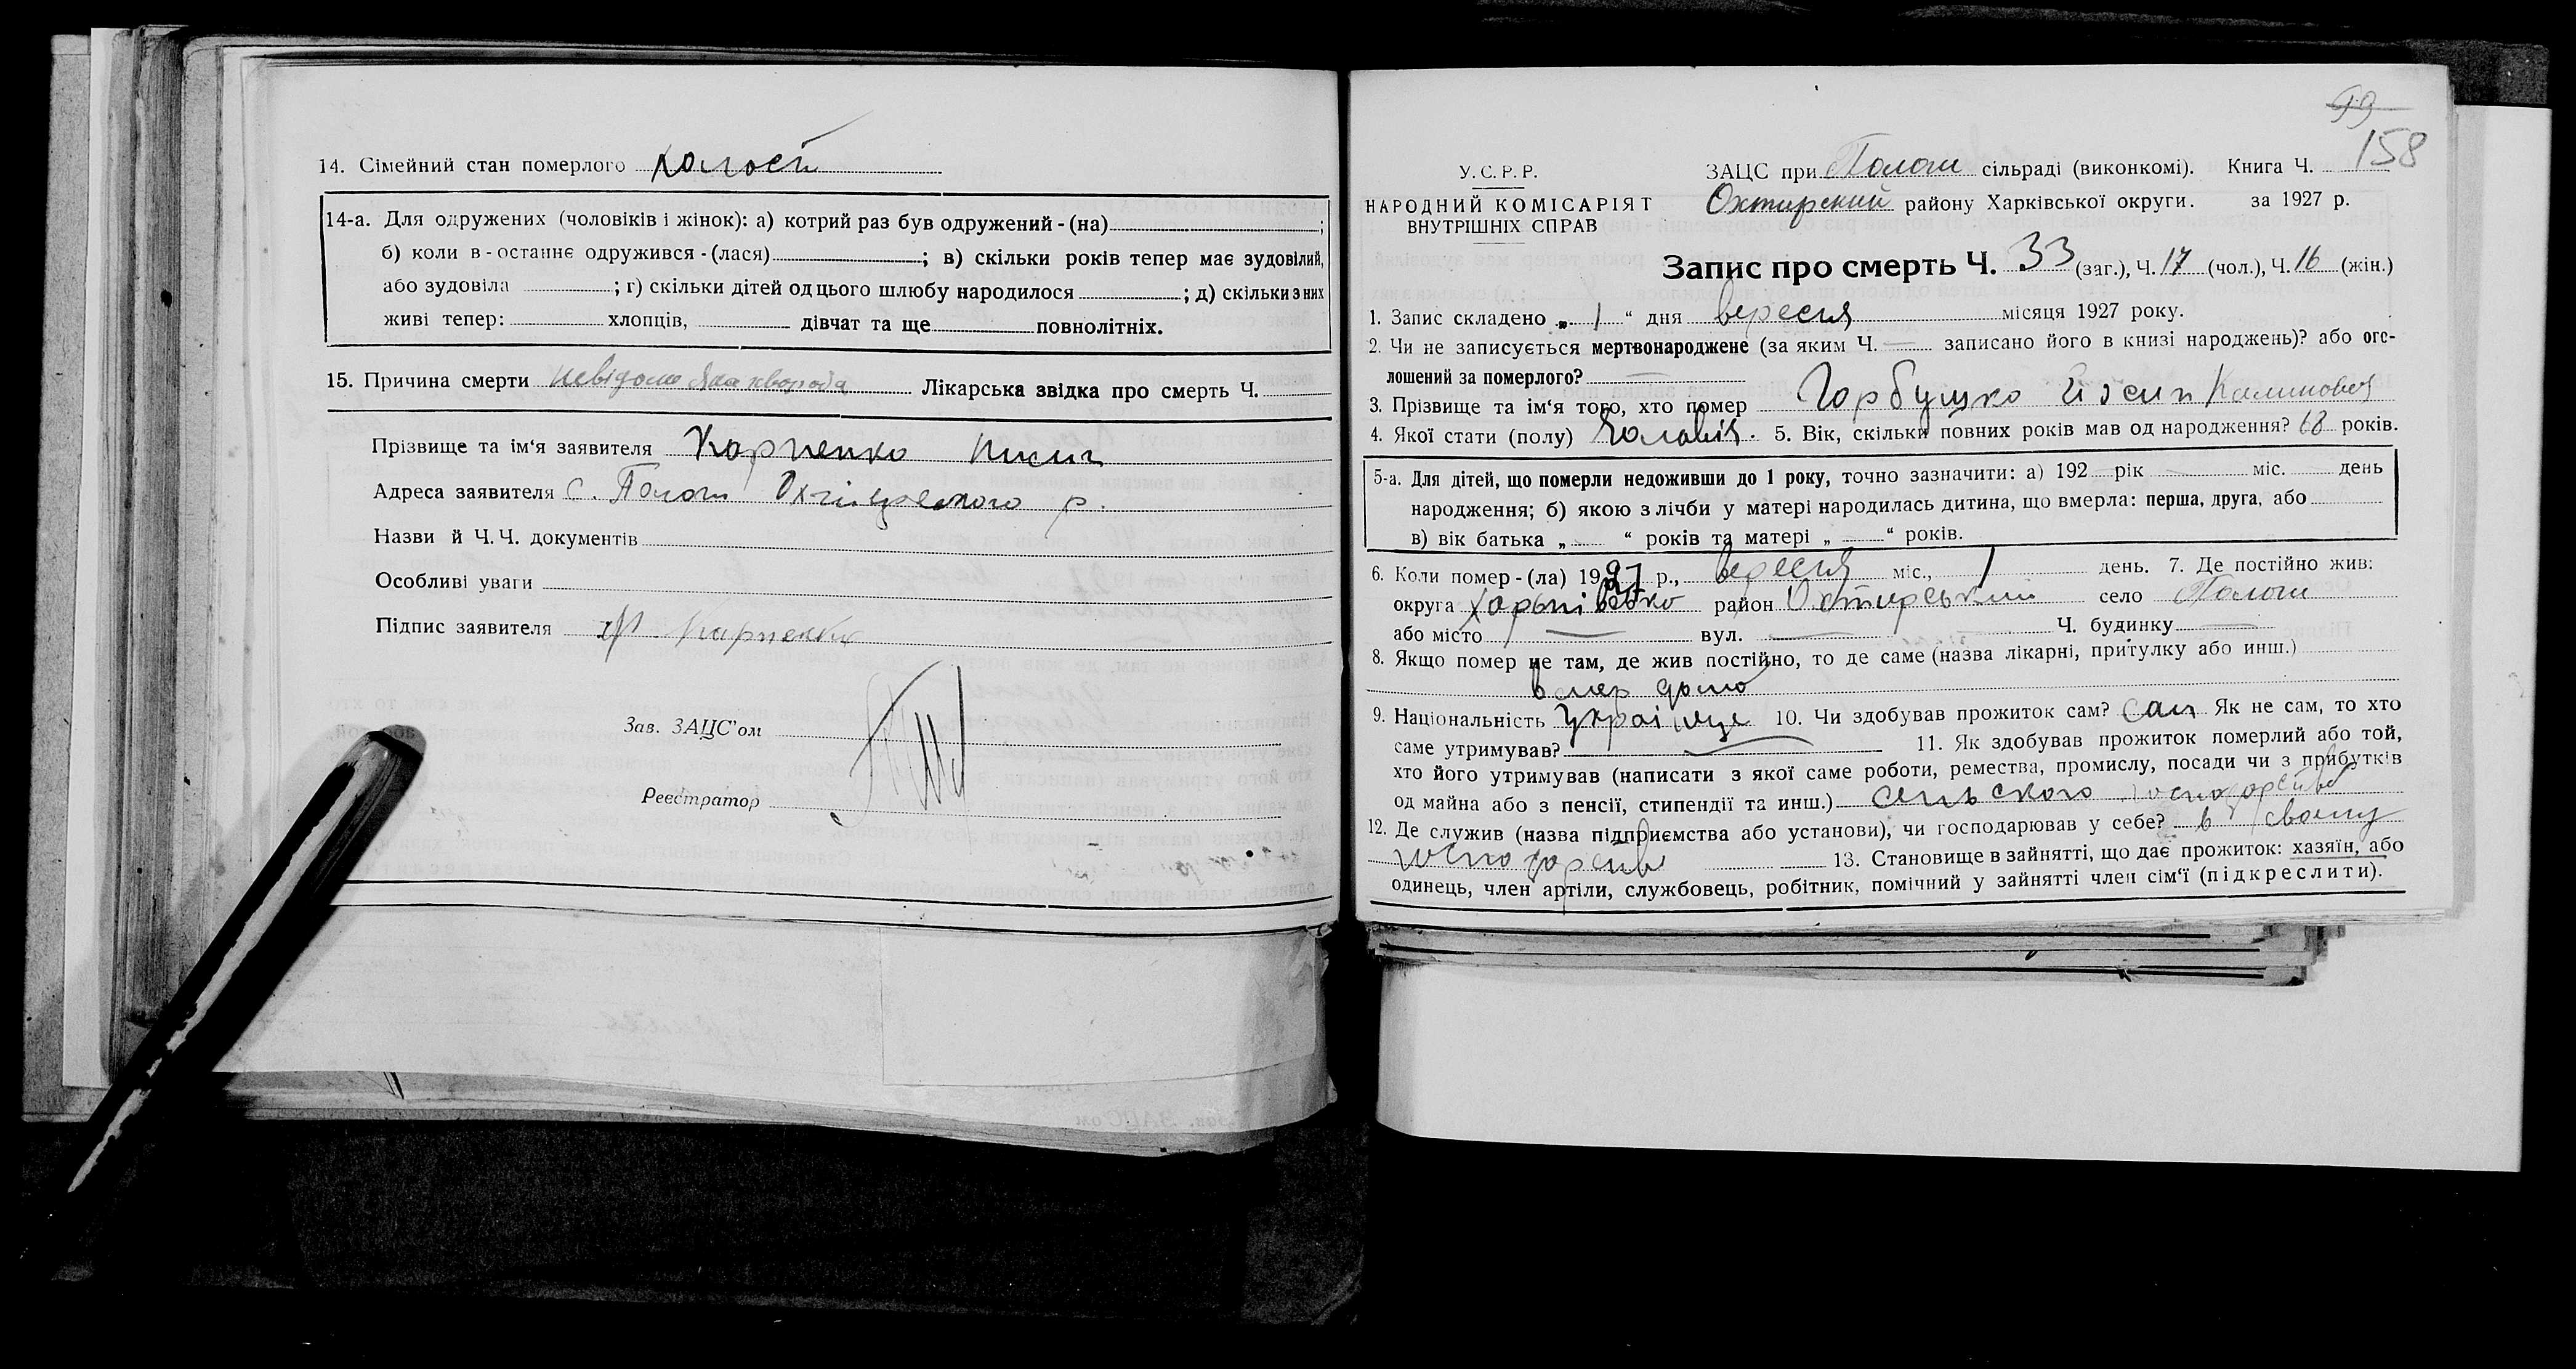 14. Сімейний стан померлого холост
14-а. Для одружених (чоловіків і жінок): а) котрий раз був одружений - (на) ;
б) коли в - останнє одружився - (лася) ; в) скільки років тепер має зудовілий,
або зудовіла ; г) скільки дітей од цього шлюбу народилося ; д) скільки з них
живі тепер: хлопців, дівчат та ще повнолітніх.
15. Причина смерти невідомо яка хвороба Лікарська звідка про смерть Ч.
Прізвище та ім'я заявителя Карпенко
Адреса заявителя с. Пологи Охтирського р.
Назви й Ч.Ч. документів
Особливі уваги
Підпис заявителя Карпенко
Зав. ЗАЦС'ом
Реєстратор
99
158
У. С. Р. Р.
НАРОДНИЙ КОМІСАРІЯТ
ВНУТРІШНІХ СПРАВ
ЗАЦС при сільраді (виконкомі). Книга Ч.
Охтирский району Харківської округи. за 1927 р.
Запис про смерть Ч. 33 (заг.), Ч. 17 (чол.), Ч. 16 (жін.)
1. Запис складено „ 1 “ дня вересня місяця 1927 року.
2. Чи не записується мертвонароджене (за яким Ч. — записано його в книзі народжень)? або ого-
лошений за померлого? —
3. Прізвище та ім'я того, хто помер Горбушко Йосип
4. Якої стати (полу) Чоловік. 5. Вік, скільки повних років мав од народження? 68 років.
5-а. Для дітей, що померли недоживши до 1 року, точно зазначити: а) 192 рік міс. день
народження; б) якою з лічби у матері народилась дитина, що вмерла: перша, друга, або
в) вік батька „ “ років та матері „ “ років.
6. Коли помер - (ла) 1927 р., вересня міс., 1 день. 7. Де постійно жив:
округа Харьківсько район Охтирський село
або місто — вул. — Ч. будинку —
8. Якщо помер не там, де жив постійно, то де саме (назва лікарні, притулку або инш.)
вмер дома
9. Національність Україиець 10. Чи здобував прожиток сам? Сам Як не сам, то хто
саме утримував? — 11. Як здобував прожиток померлий або той,
хто його утримував (написати з якої саме роботи, ремества, промислу, посади чи з прибутків
од майна або з пенсії, стипендії та инш.) сільського господарства
12. Де служив (назва підприємства або установи), чи господарював у себе? в своему
господарстві 13. Становище в зайнятті, що дає прожиток: хазяїн, або
одинець, член артіли, службовець, робітник, помічний у зайнятті член сім'ї (підкреслити).